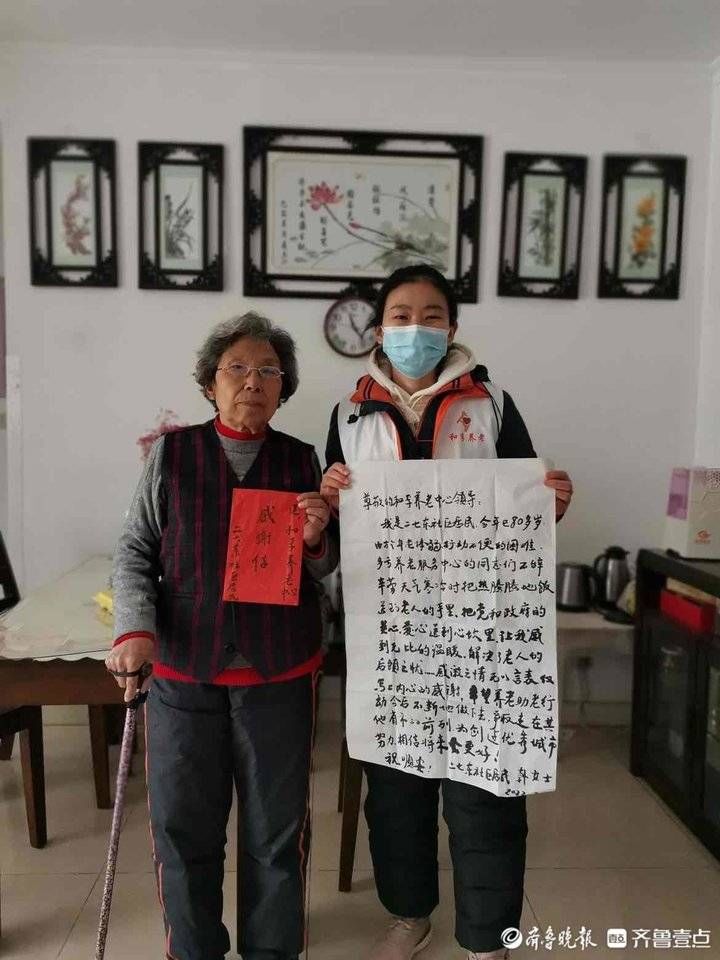 感谢信
和享养老
尊敬的和享养老中心领导:
我是二七东社区居民,今年已80多岁
由于年老体弱行动不便的困难,
享养老服务中心的同志们不怕
辛苦天气寒冷时把热腾腾地饭
送到老人的手里,把党和政府的
关心爱心送到心坎里,让我感
到无比的温暖,解决了老人的
后顾之忧……感激之情无以言表仅
内心的感谢,希望养老助老行
动今后不断地做下去,争取走在其
他省市前列为创造优秀城市
努力相信将来会更好!
祝顺安!
二七东社区居民 韩女士
齐鲁晚报 壹点 齐鲁壹点